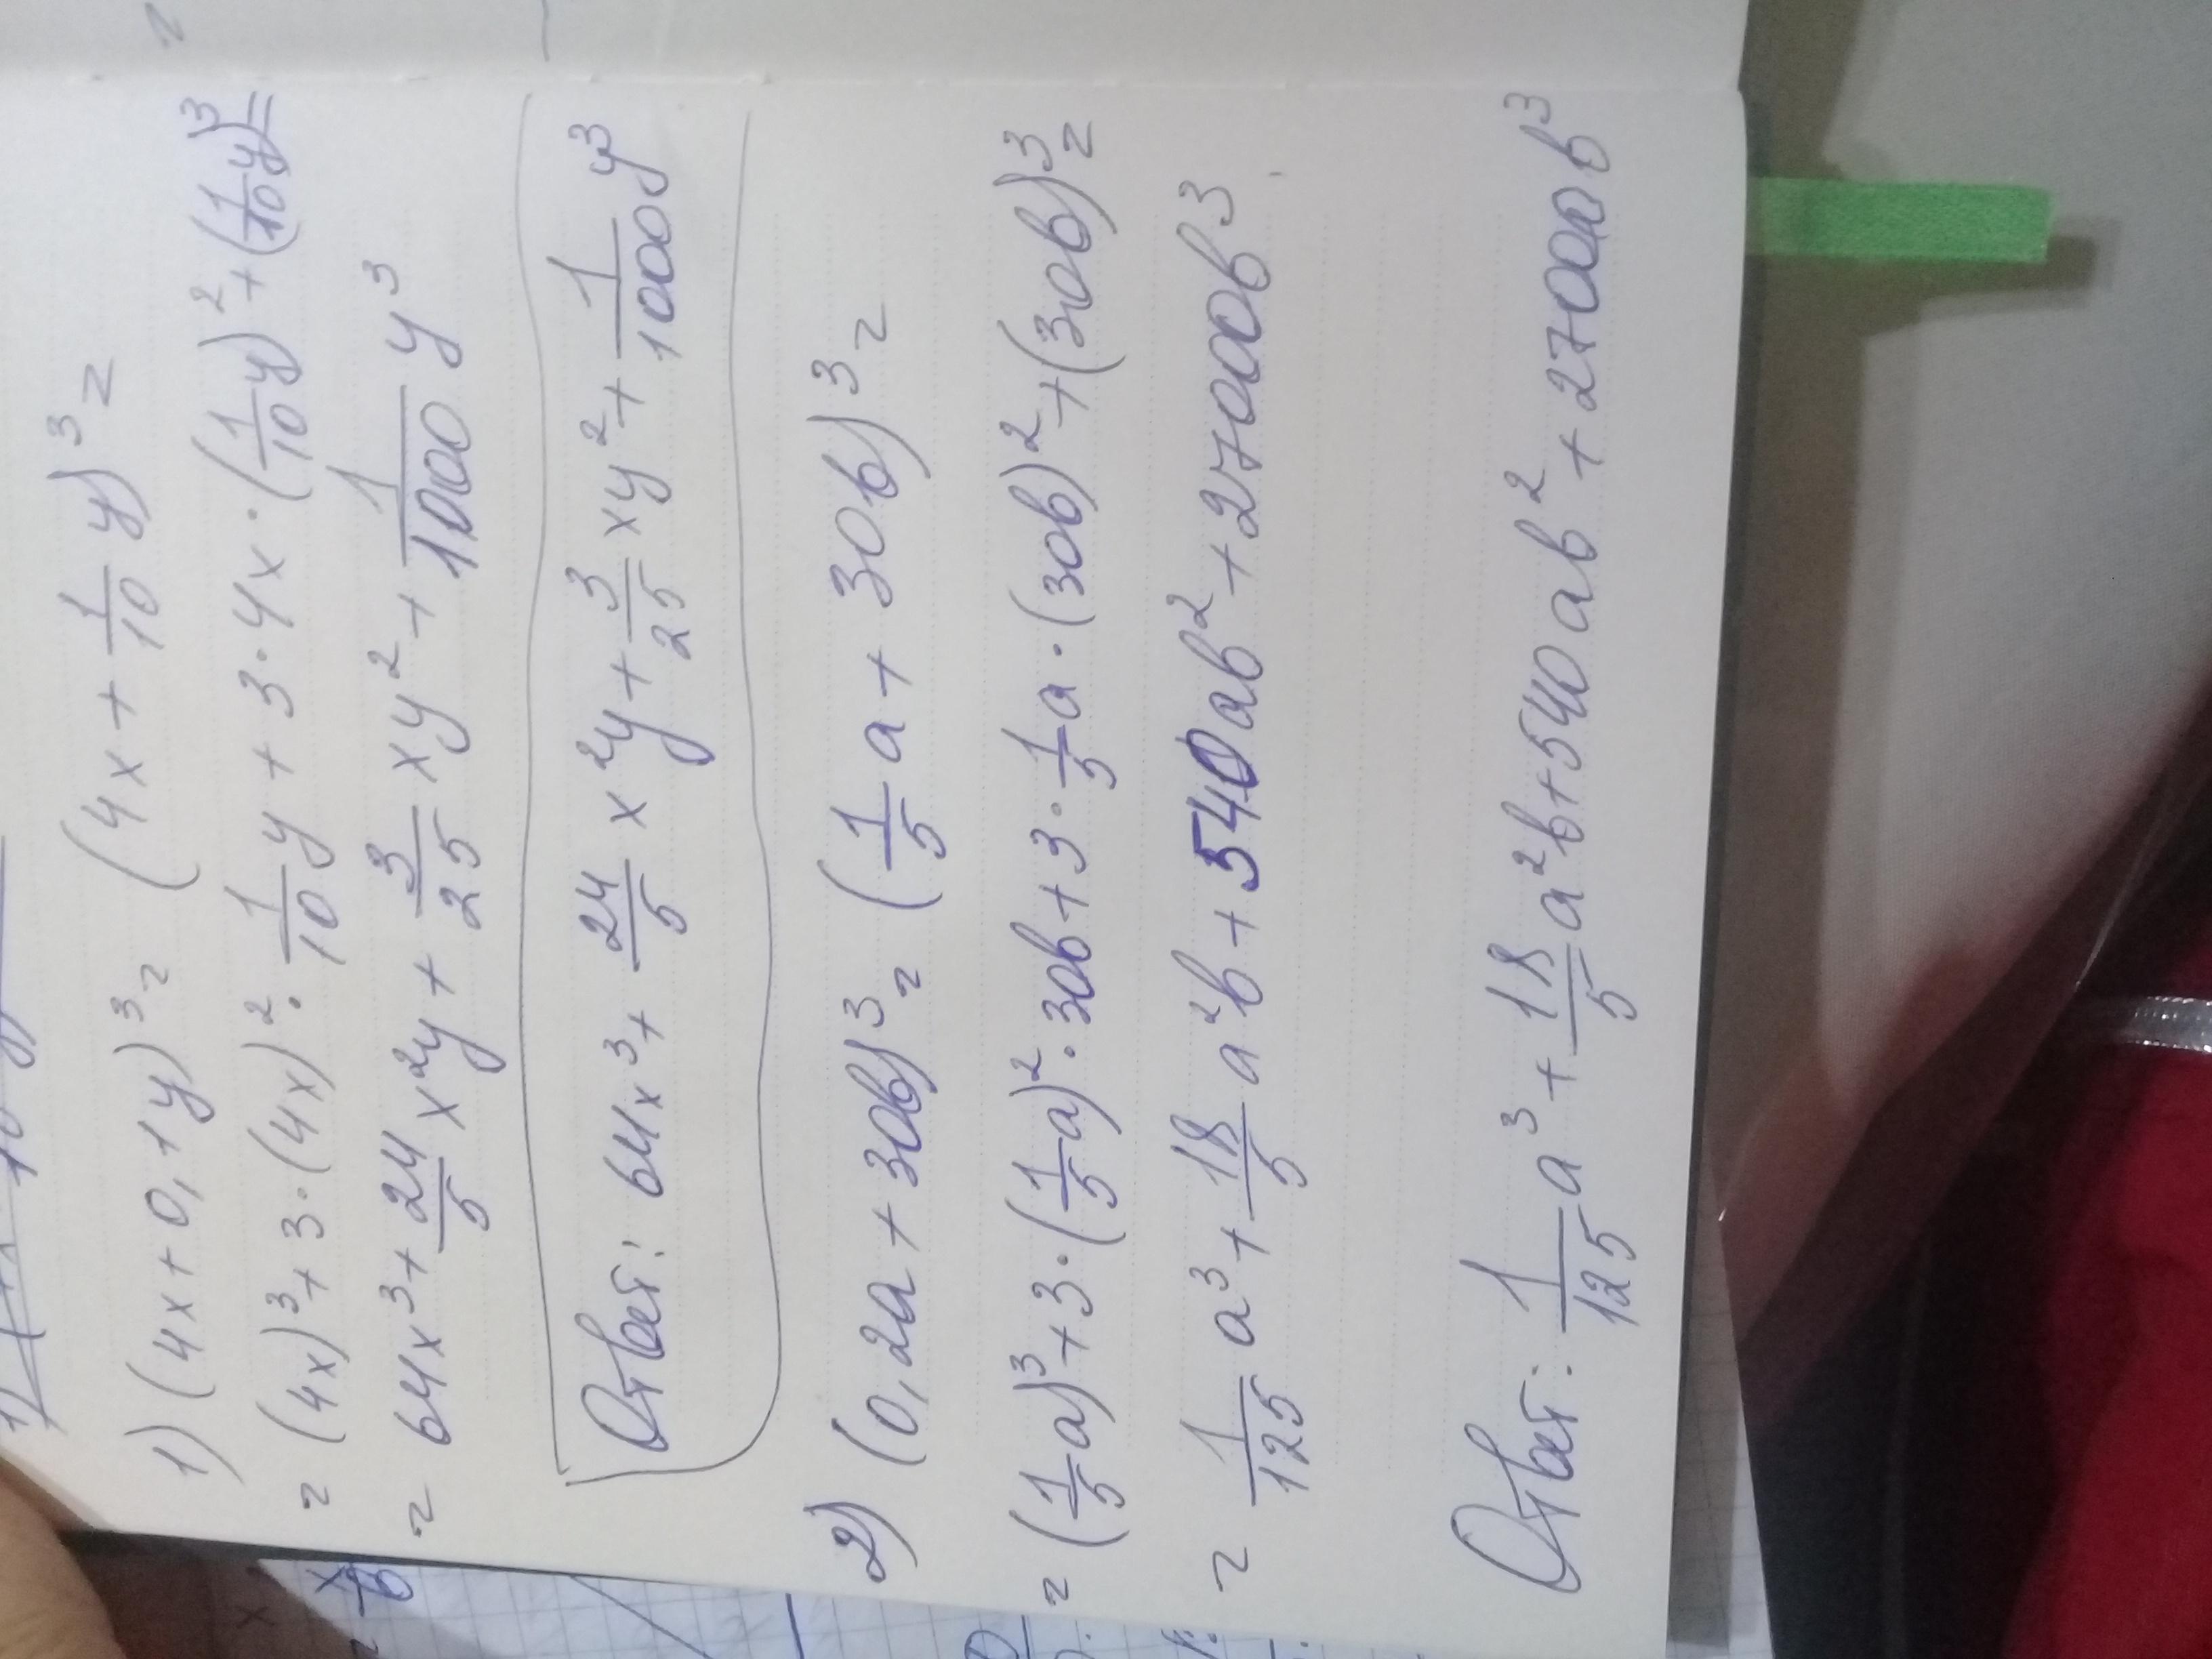 1) (4x + 0,1y)³ = (4x + 1/10 y)³ =
= (4x)³ + 3 · (4x)² · 1/10 y + 3 · 4x · (1/10 y)² + (1/10 y)³ =
= 64x³ + 24/5 x²y + 3/25 xy² + 1/1000 y³
Ответ: 64x³ + 24/5 x²y + 3/25 xy² + 1/1000 y³
2) (0,2a + 30b)³ = (1/5 a + 30b)³ =
= (1/5 a)³ + 3 · (1/5 a)² · 30b + 3 · 1/5 a · (30b)² + (30b)³ =
= 1/125 a³ + 18/5 a²b + 540ab² + 27000b³
Ответ: 1/125 a³ + 18/5 a²b + 540ab² + 27000b³